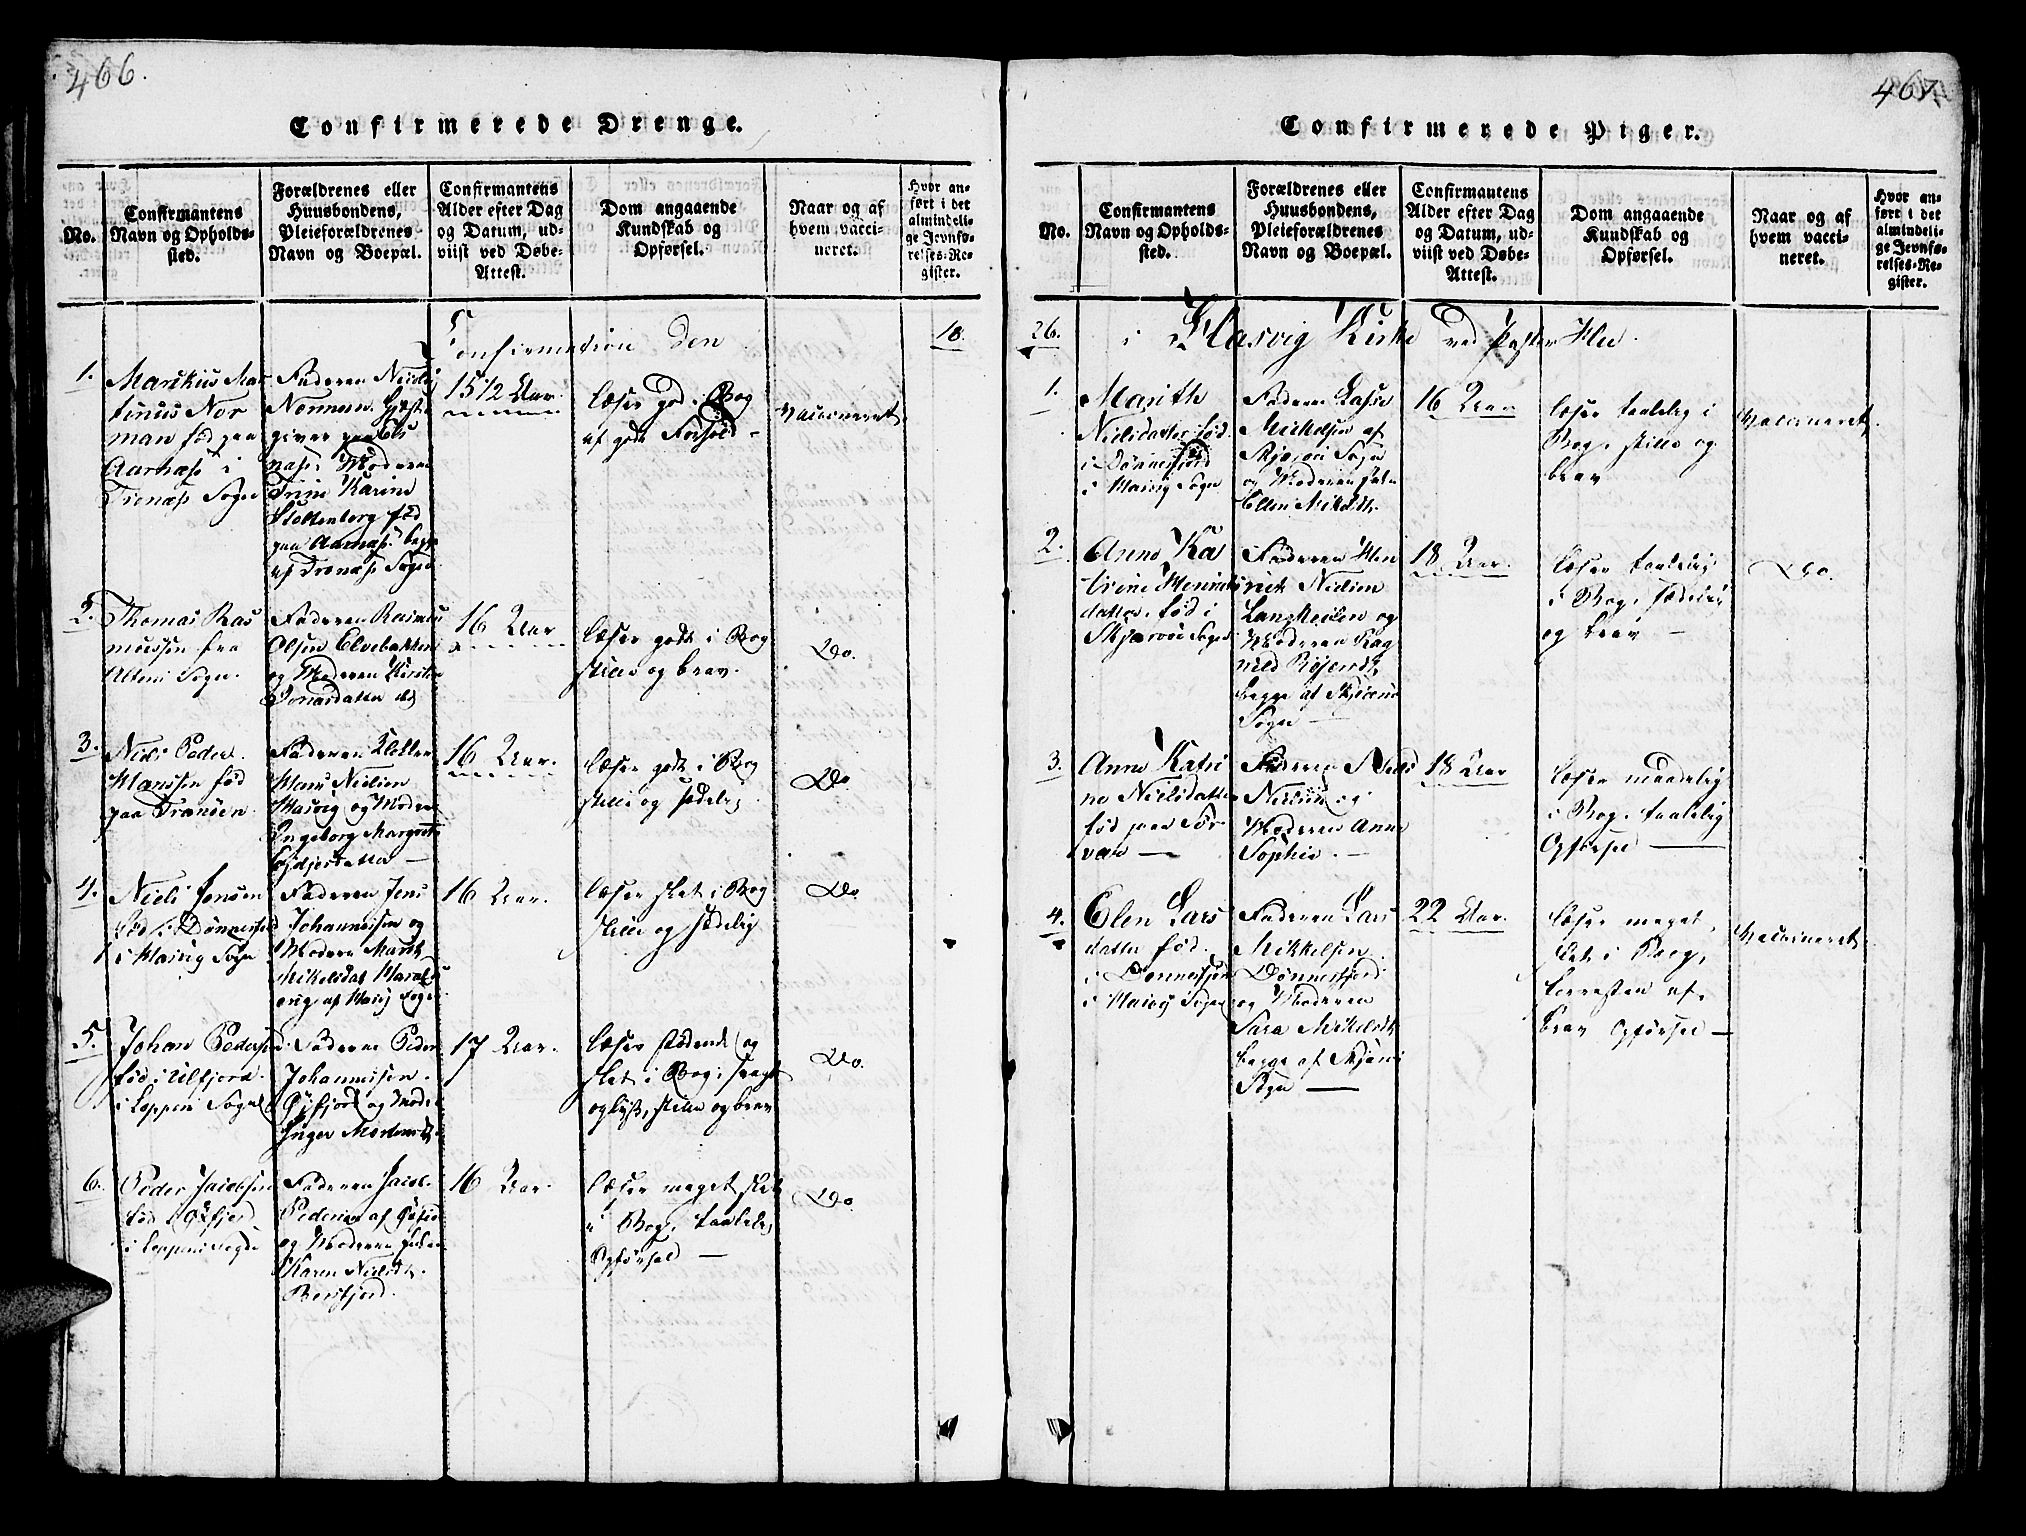 466.
Confirmerede Drenge.
No.
Confirmantens
Navn og Opholds-
sted.
Forældrenes eller
Huusbondens,
Pleieforældrenes
Navn og Boepæl.
Confirmantens
Alder efter Dag
og Datum, ud-
viist ved Døbe-
Attest.
Dom angaaende
Kundskab og
Opførsel.
Naar og af
hvem vacci-
neret.
Hvor an-
ført i det
almindeli-
ge Jevnfø-
relses-Re-
gister.
Confirmation den
18
1.
Marikus Mar
tinus Nor
man fød paa
Aarnæs i
Tronæs Sogn
Faderen
Norman Gjæst
giver paa
næs Moderen
Trine Karine
Stoltenberg fød
paa Aarnæs begge
af Tronæs Sogn
15 1/2 Aar
læser godt i Bog
af godt Forhold
Vaccineret
2.
Thomas Ras
mussen fra
Altens Sogn
Faderen Rasmus
Olsen Elvebakken
og Moderen Kirsten
Jonasdatter
16 Aar
læser godt i Bog
stille og brav.
Do.
3.
Niels Peder
Hanssen fød
paa Transøen
Faderen Klokker
Hans Nielsen
Hasvig og Moder
Ingeborg Margrethe
16 Aar.
læser godt i Bog
stille og sædelig
Do
4.
Niels Jensen
fød i Dønnesfjord
i Hasvig Sogn
Faderen Jens
Johannessen og
Moderen Marith
Mikelsdat
af Hasvig Sogn
16 Aar.
læser slet i Bog
stille og sædelig
Do
5.
Johan Pedersen
fød i Ulfjord
i Loppens Sogn
Faderen Peder
Johannessen
Øxfjord og Moder
Inger Mortensdt
17 Aar.
læser stødende og
slet i Bog, svagt
stille og brav
Do.
6.
Peder Jacobsen
fød i Øxfjord
i Loppens Sogn
Faderen Jacob
Pedersen af
og Moderen
Karen Nielsdt.
Bergfjord.
16 Aar.
læser meget slet
i Bog, taalelig
Opførsel —
Do
467.
Confirmerede Piger.
No.
Confirmantens
Navn og Opholds-
sted.
Forældrenes eller
Huusbondens,
Pleieforældrenes
Navn og Boepæl.
Confirmantens
Alder efter Dag
og Datum, ud-
viist ved Døbe-
Attest.
Dom angaaende
Kundskab og
Opførsel.
Naar og af
hvem vacci-
neret.
Hvor an-
ført i det
almindeli-
ge Jevnfø-
relses-Re-
gister.
26.
i Hasvig Kirke ved Pastor
1.
Marith
Nielsdatter fød
i Dønnesfjord
i Hasvig Sogn
Faderen
Mikelsen af
Skjærvøe Sogn
og Moderen
Ellen Nielsdt.
16 Aar
læser taalelig i
Bog, stille og
brav
Vaccineret
2.
Anne Ka
trine Henriks
datter, fød i
Skjærvøe Sogn
Faderen Hen
rick Nielsen
og
Moderen Rag
nild
begge af Skjærvø
Sogn —
18 Aar.
læser taalelig
i Bog, sædelig
og brav —
Do.
3.
Anne Katri
ne Nielsdatter
fød paa Sør
vær —
Faderen Niels
Nielsen og
Moderen Anne
Sophie. —
18 Aar
læser maadelig
i Bog, taalelig
Opførsel —
4.
Elen Lars
datter fød
i Dønnesfjord
i Hasvig Sogn
Faderen Lars
Mikkelsen
Dønnesfjord
og Moderen
Sara Mikelsdt
begge af Skjærvø
Sogn —
22 Aar.
læser meget
slet i Bog,
af
brav Opførsel —
Vaccineret